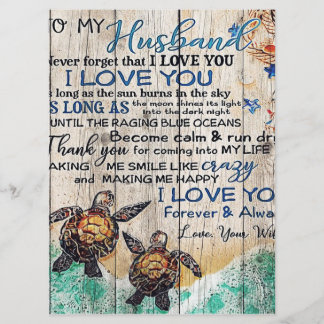 TO MY Husband
Never forget that I LOVE YOU
I LOVE YOU
As long as the sun burns in the sky
AS LONG AS the moon shines its light
into the dark night
UNTIL THE RAGING BLUE OCEANS
Become calm & run dr
Thank you for coming into MY LIFE
AKING ME SMILE LIKE crazy
and MAKING ME HAPPY
I LOVE YO
Forever & Alwa
Love, Your Wif